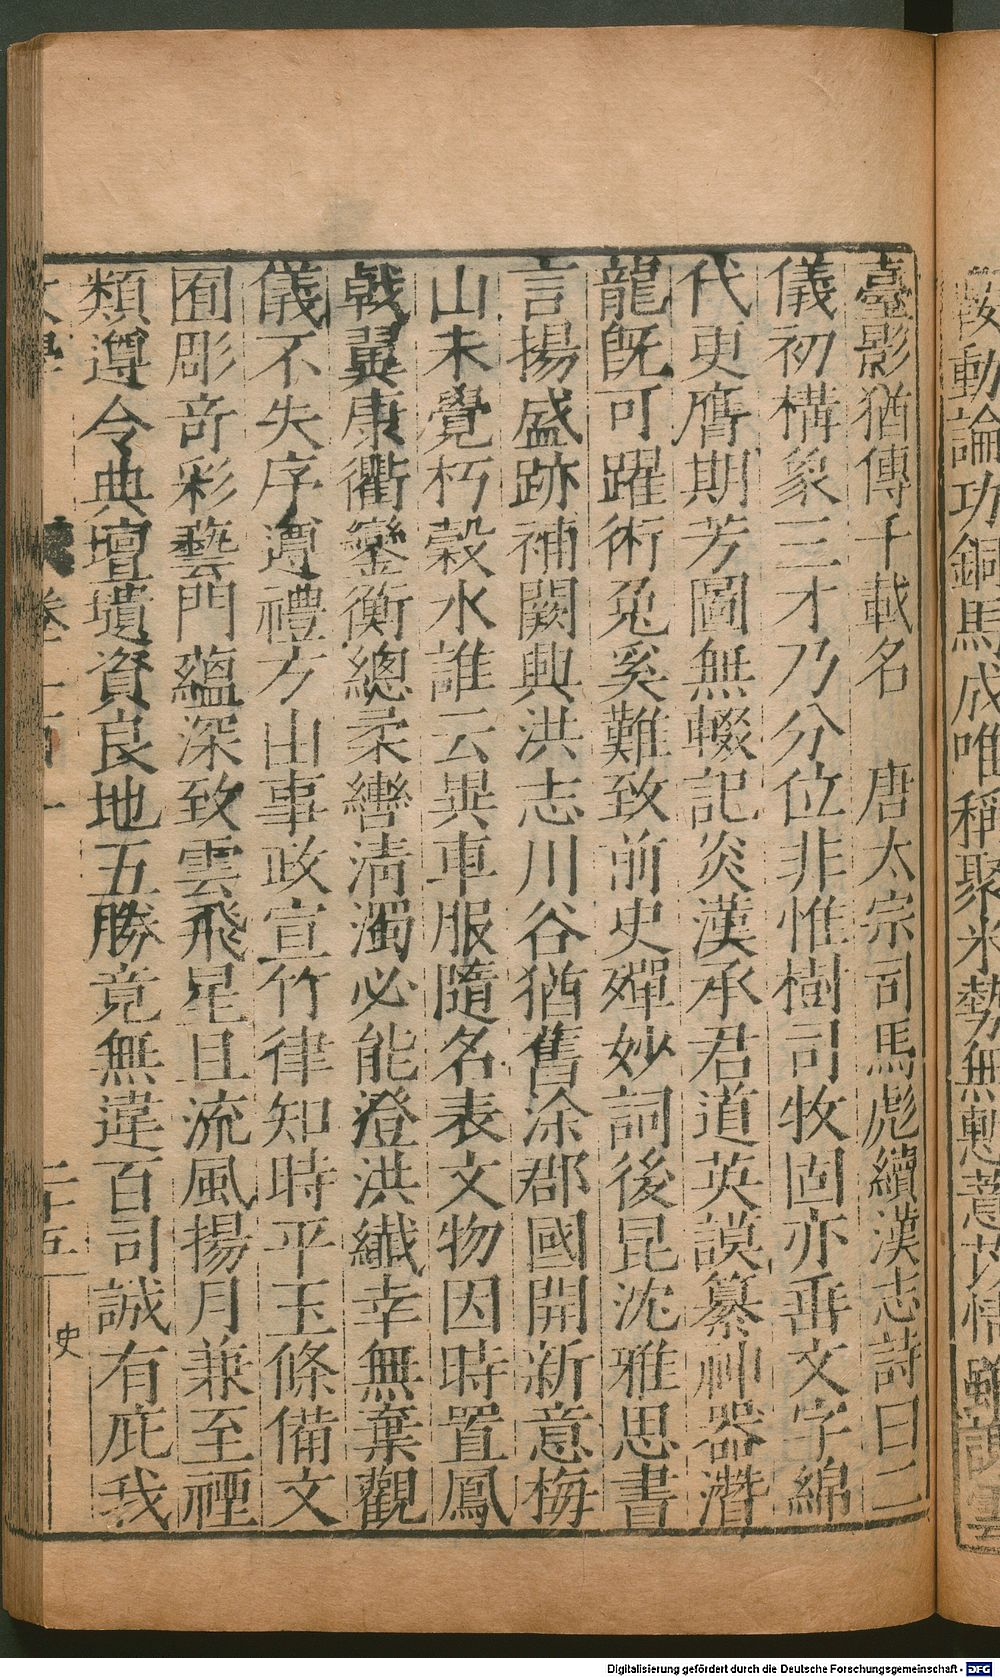 鞍動論功銅馬成唯稱聚米勢無慙薏苡情
臺影猶傳千載名　唐太宗司馬彪續漢志詩曰二
儀初構象三才乃分位非惟樹司牧固亦垂文字綿
代更膺期芳圖無輟記炎漢承君道英謨纂神器潛
龍旣可躍術兔奚難致前史殫妙詞後昆沈雅思書
言揚盛跡補闕興洪志川谷猶舊涂郡國開新意梅
山未覺朽穀水誰云異車服隨名表文物因時置鳳
戟翼康衢鑾衡總柔轡淸濁必能澄洪纖幸無棄觀
儀不失序遵禮方由事政宣竹律知時平玉條備文
囿彫奇彩藝門蘊深致雲飛星且流風揚月兼至禋
類遵令典壇壝資良地五勝竟無違百司誠有庇我
卷一百一
二十五
史
Digitalisierung gefördert durch die Deutsche Forschungsgemeinschaft - DFG